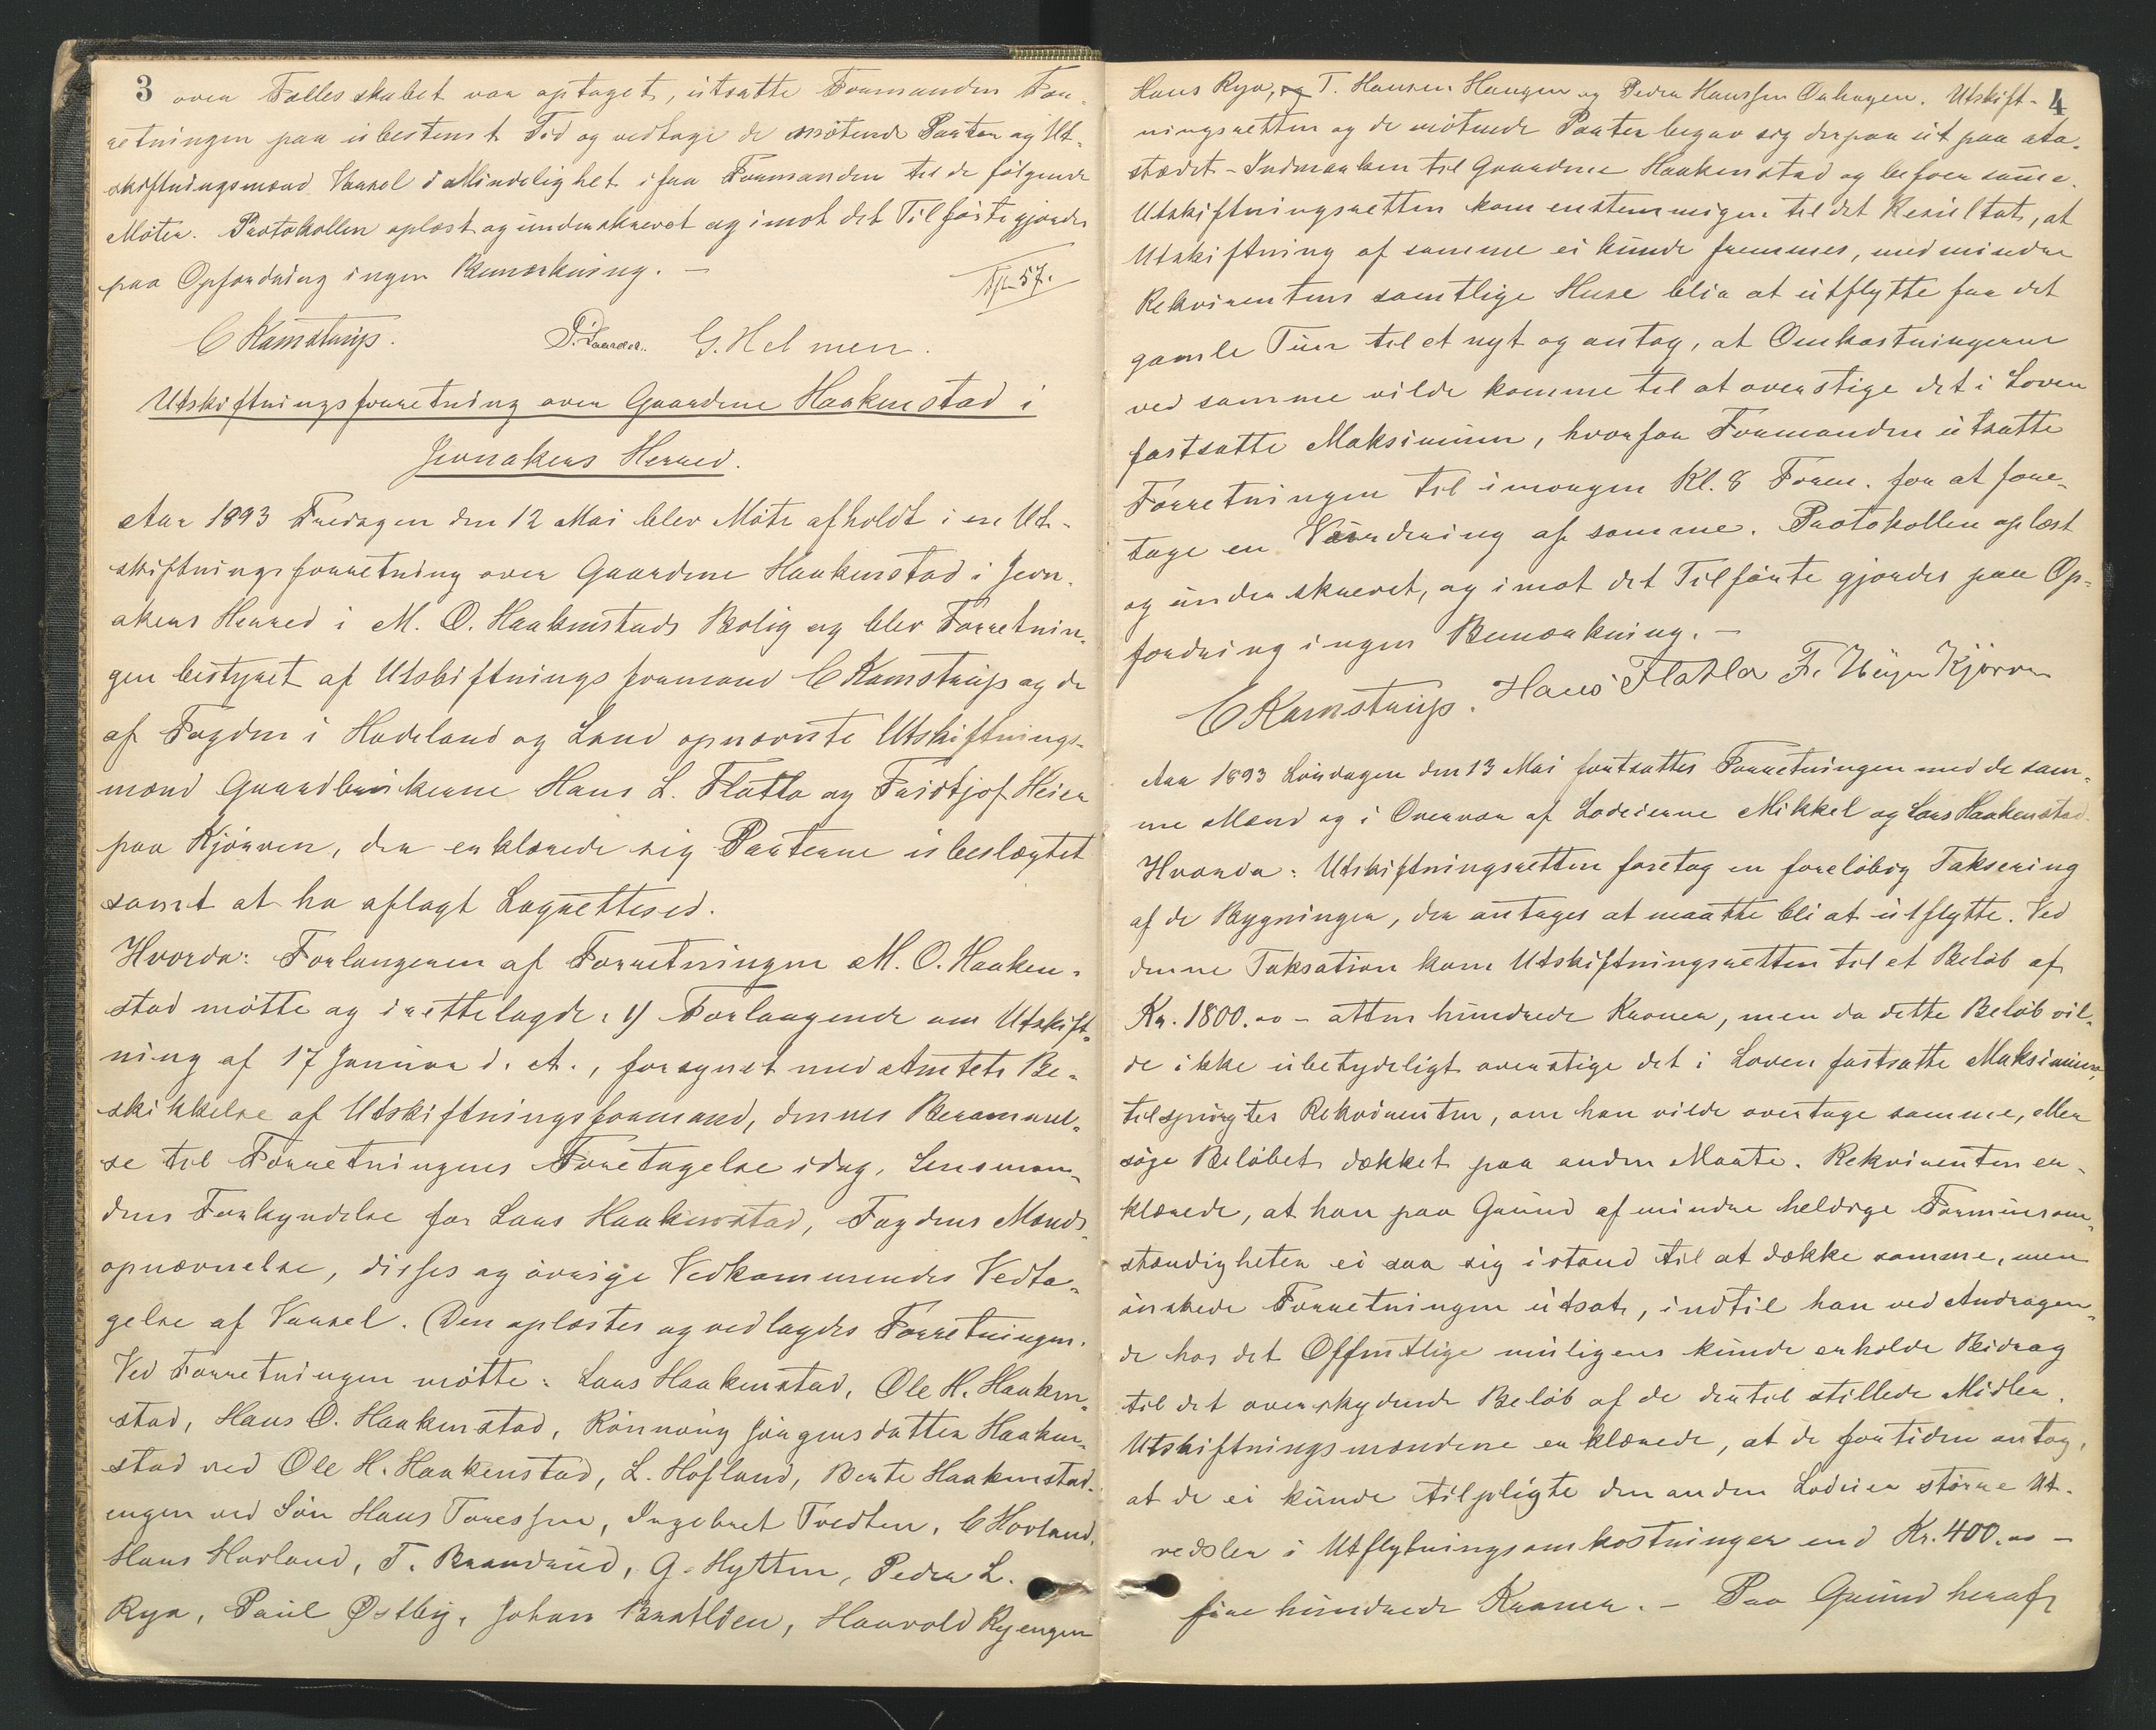 3
over Fællesskabet var optaget, utsatte Formanden For-
retningen paa ubestemt Tid og vedtoge de møtende Parter og Ut-
skiftningsmænd Varsel i Mindelighet ifra Formanden til de følgende
Møter. Protokollen oplæst og underskrevet og imot det Tilførte gjordes
paa Opfordring ingen Bemærkning. —
57.
C Kamstrup.
G. Helmen.
Utskiftningsforretning over Gaardene Haakenstad i
Jevnakers Herred.
Aar 1893 Fredagen den 12 Mai blev Møte afholdt i en Ut-
skiftningsforretning over Gaardene Haakenstad i Jevn-
akers Herred i M. O. Haakenstads Bolig og blev Forretnin-
gen bestyret af Utskiftningsformand C Kamstrup og de
af Fogden i Hadeland og Land opnævnte Utskiftnings-
mænd Gaardbrukerne Hans L. Flatla og Fridtjof Heier
paa Kjørven, der erklærede sig Parterne ubeslægtet
samt at ha aflagt Lagrettesed.
Hvorda: Forlangeren af Forretningen M. O. Haaken-
stad møtte og irettelagde: 1) Forlangende om Utskift-
ning af 17 Januar d. A., forsynet med Amtets Be-
skikkelse af Utskiftningsformand, dennes Berammel-
se til Forretningens Foretagelse idag, Lensman-
dens Forkyndelse for Lars Haakenstad, Fogdens Mænds-
opnævnelse, disses og øvrige Vedkommendes Vedta-
gelse af Varsel. Den oplæstes og vedlagdes Forretningen.
Ved Forretningen møtte: Lars Haakenstad, Ole H. Haaken-
stad, Hans O. Haakenstad, Rønnaug Jørgensdatter Haaken-
stad ved Ole H. Haakenstad, L. Hofland, Berte Haakenstad-
engen ved Søn Hans Toressen, Ingebret Tvedten, C Hovland,
Hans Hovland, T. Brandrud, G. Hytten, Peder L.
Rya, Paul Østby, Johan Bratlien, Haavold Ryengen
4
Hans Rya, og T. Hansen Haugen og Peder Hanssen Oxhagen. Utskift-
ningsretten og de møtende Parter begav sig derpaa ut paa Aa-
stædet - Indmarken til Gaardene Haakenstad og befoer samme.
Utskiftningsretten kom enstemmigen til det Resultat, at
Utskiftning af samme ei kunde fremmes, medmindre
Rekvirentens samtlige Huse blir at utflytte fra det
gamle Tun til et nyt og antog, at Omkostningerne
ved samme vilde komme til at overstige det i Loven
fastsatte Maksimum, hvorfor Formanden utsatte
Forretningen til imorgen Kl. 8 Form. for at fore-
tage en Vurdering af samme. Protokollen oplæst
og underskrevet, og imot det Tilførte gjordes paa Op-
fordring ingen Bemærkning. —
C Kamstrup. Hans Flatla F. Heyer Kjørven
Aar 1893 Lørdagen den 13 Mai fortsattes Forretningen med de sam-
me Mænd og i Overvær af Lodeierne Mikkel og Lars Haakenstad.
Hvorda: Utskiftningsretten foretog en foreløbig Taksering
af de Bygninger, der antages at maatte bli at utflytte. Ved
denne Taksation kom Utskiftningsretten til et Beløb af
Kr. 1800.00 - atten hundrede Kroner, men da dette Beløb vil-
de ikke ubetydeligt overstige det i Loven fastsatte Maksimum,
tilspurgtes Rekvirenten, om han vilde overtage samme, eller
søge Beløbet dækket paa anden Maate. Rekvirenten er-
klærede, at han paa Grund af mindre heldige Formuesom-
stændigheter ei saa sig istand til at dække samme, men
ønskede Forretningen utsat, indtil han ved Andragen-
de hos det Offentlige muligens kunde erholde Bidrag
til det overskydende Beløb af de dertil stillede Midler.
Utskiftningsmændene erklærede, at de fortiden antog,
at de ei kunde tilpligte den anden Lodeier større Ut-
redsler i Utflytningsomkostninger end Kr. 400.00 -
fire hundrede Kroner. — Paa Grund heraf